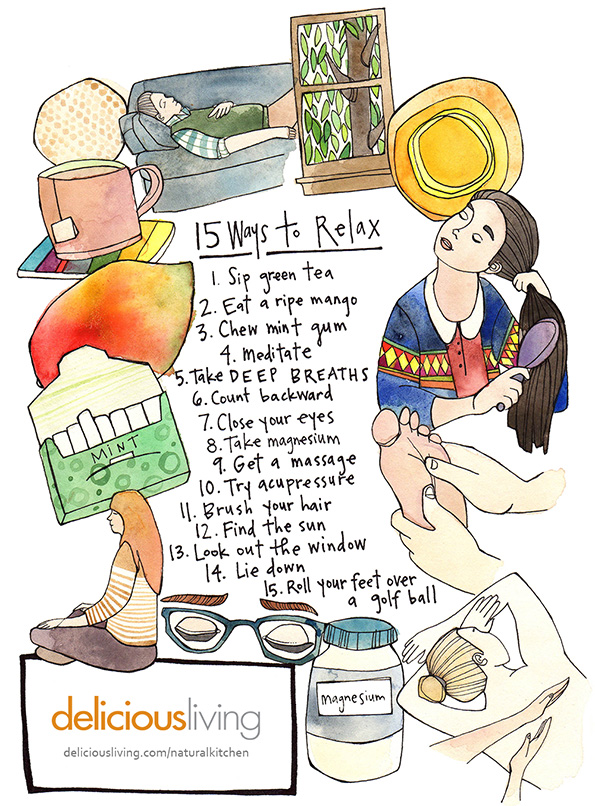 15 Ways to Relax
1. Sip green tea
2. Eat a ripe mango
3. Chew mint gum
4. Meditate
5. Take DEEP BREATHS
6. Count backward
7. Close your eyes
8. Take magnesium
9. Get a massage
10. Try acupressure
11. Brush your hair
12. Find the sun
13. Look out the window
14. Lie down
15. Roll your feet over
a golf ball
MINT
magnesium
deliciousliving
deliciousliving.com/naturalkitchen